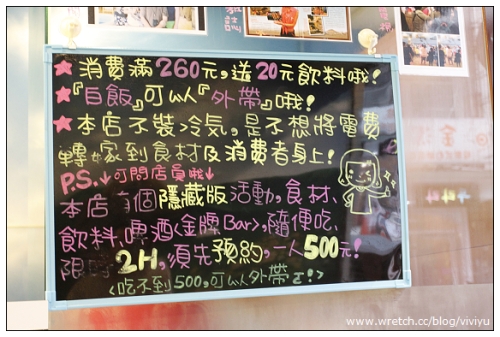 ★消費滿260元,送20元飲料哦!
★『白飯』可以『外帶』哦!
★本店不裝冷氣,是不想將電費
轉嫁到食材及消費者身上!
P.S.↓可問店員哦↓
本店有個隱藏版活動,食材、
飲料、啤酒<金牌Bar>,隨便吃、
限時2H,須先預約,一人500元!
<吃不到500,可以外帶ㄛ!>
www.wretch.cc/blog/viviyu